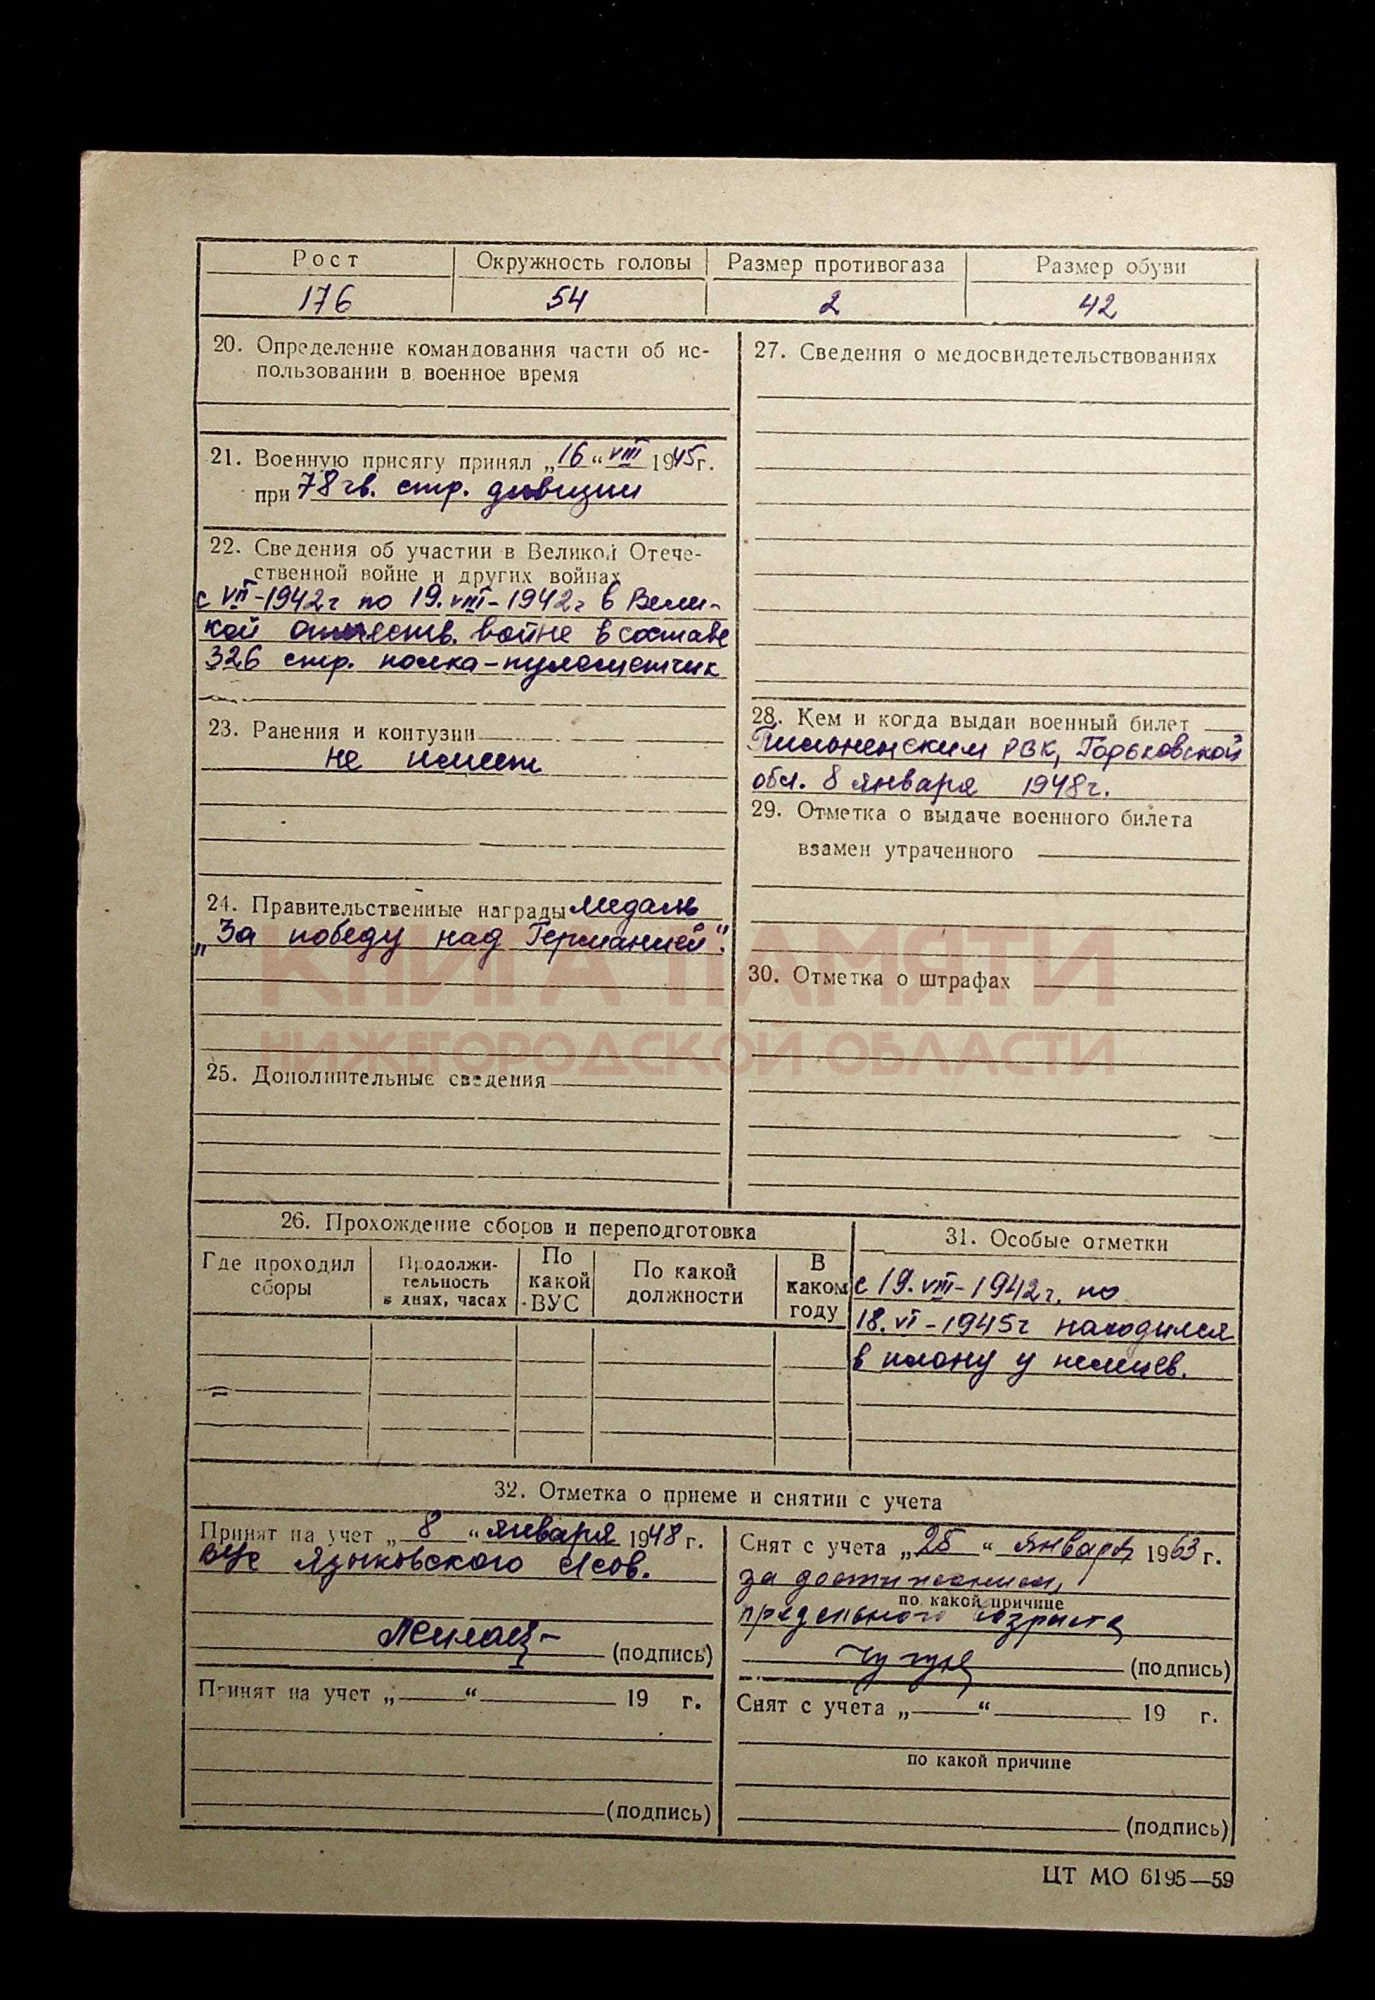 Рост Окружность головы Размер противогаза Размер обуви
176 54 2 42
20. Определение командования части об ис-
пользовании в военное время
21. Военную присягу принял „16“ VIII 1945г.
при 78 гв. стр. дивизии
22. Сведения об участии в Великой Отече-
ственной войне и других войнах
с VII-1942г по 19.VIII-1942г в Вели-
кой отечеств. войне в составе
326 стр. полка-пулеметчик
23. Ранения и контузии
не имеет
24. Правительственные награды медаль
„За победу над Германией".
25. Дополнительные сведения
27. Сведения о медосвидетельствованиях
28. Кем и когда выдан военный билет
РВК, Горьковской
обл. 8 января 1948г.
29. Отметка о выдаче военного билета
взамен утраченного
30. Отметка о штрафах
КНИГА ПАМЯТИ
НИЖЕГОРОДСКОЙ ОБЛАСТИ
26. Прохождение сборов и переподготовка
Где проходил
сборы
Продолжи-
тельность
в днях, часах
По
какой
ВУС
По какой
должности
В
каком
году
31. Особые отметки
с 19.VIII-1942г. по
18.VI-1945г находился
в плену у немцев.
32. Отметка о приеме и снятии с учета
Принят на учет „8“ января 1948г.
ВУС Языковского с/сов.
(подпись)
Принят на учет „ “ 19 г.
(подпись)
Снят с учета „25“ января 1963г.
за достижением
по какой причине
предельного возраста
(подпись)
Снят с учета „ “ 19 г.
по какой причине
(подпись)
ЦТ МО 6195—59